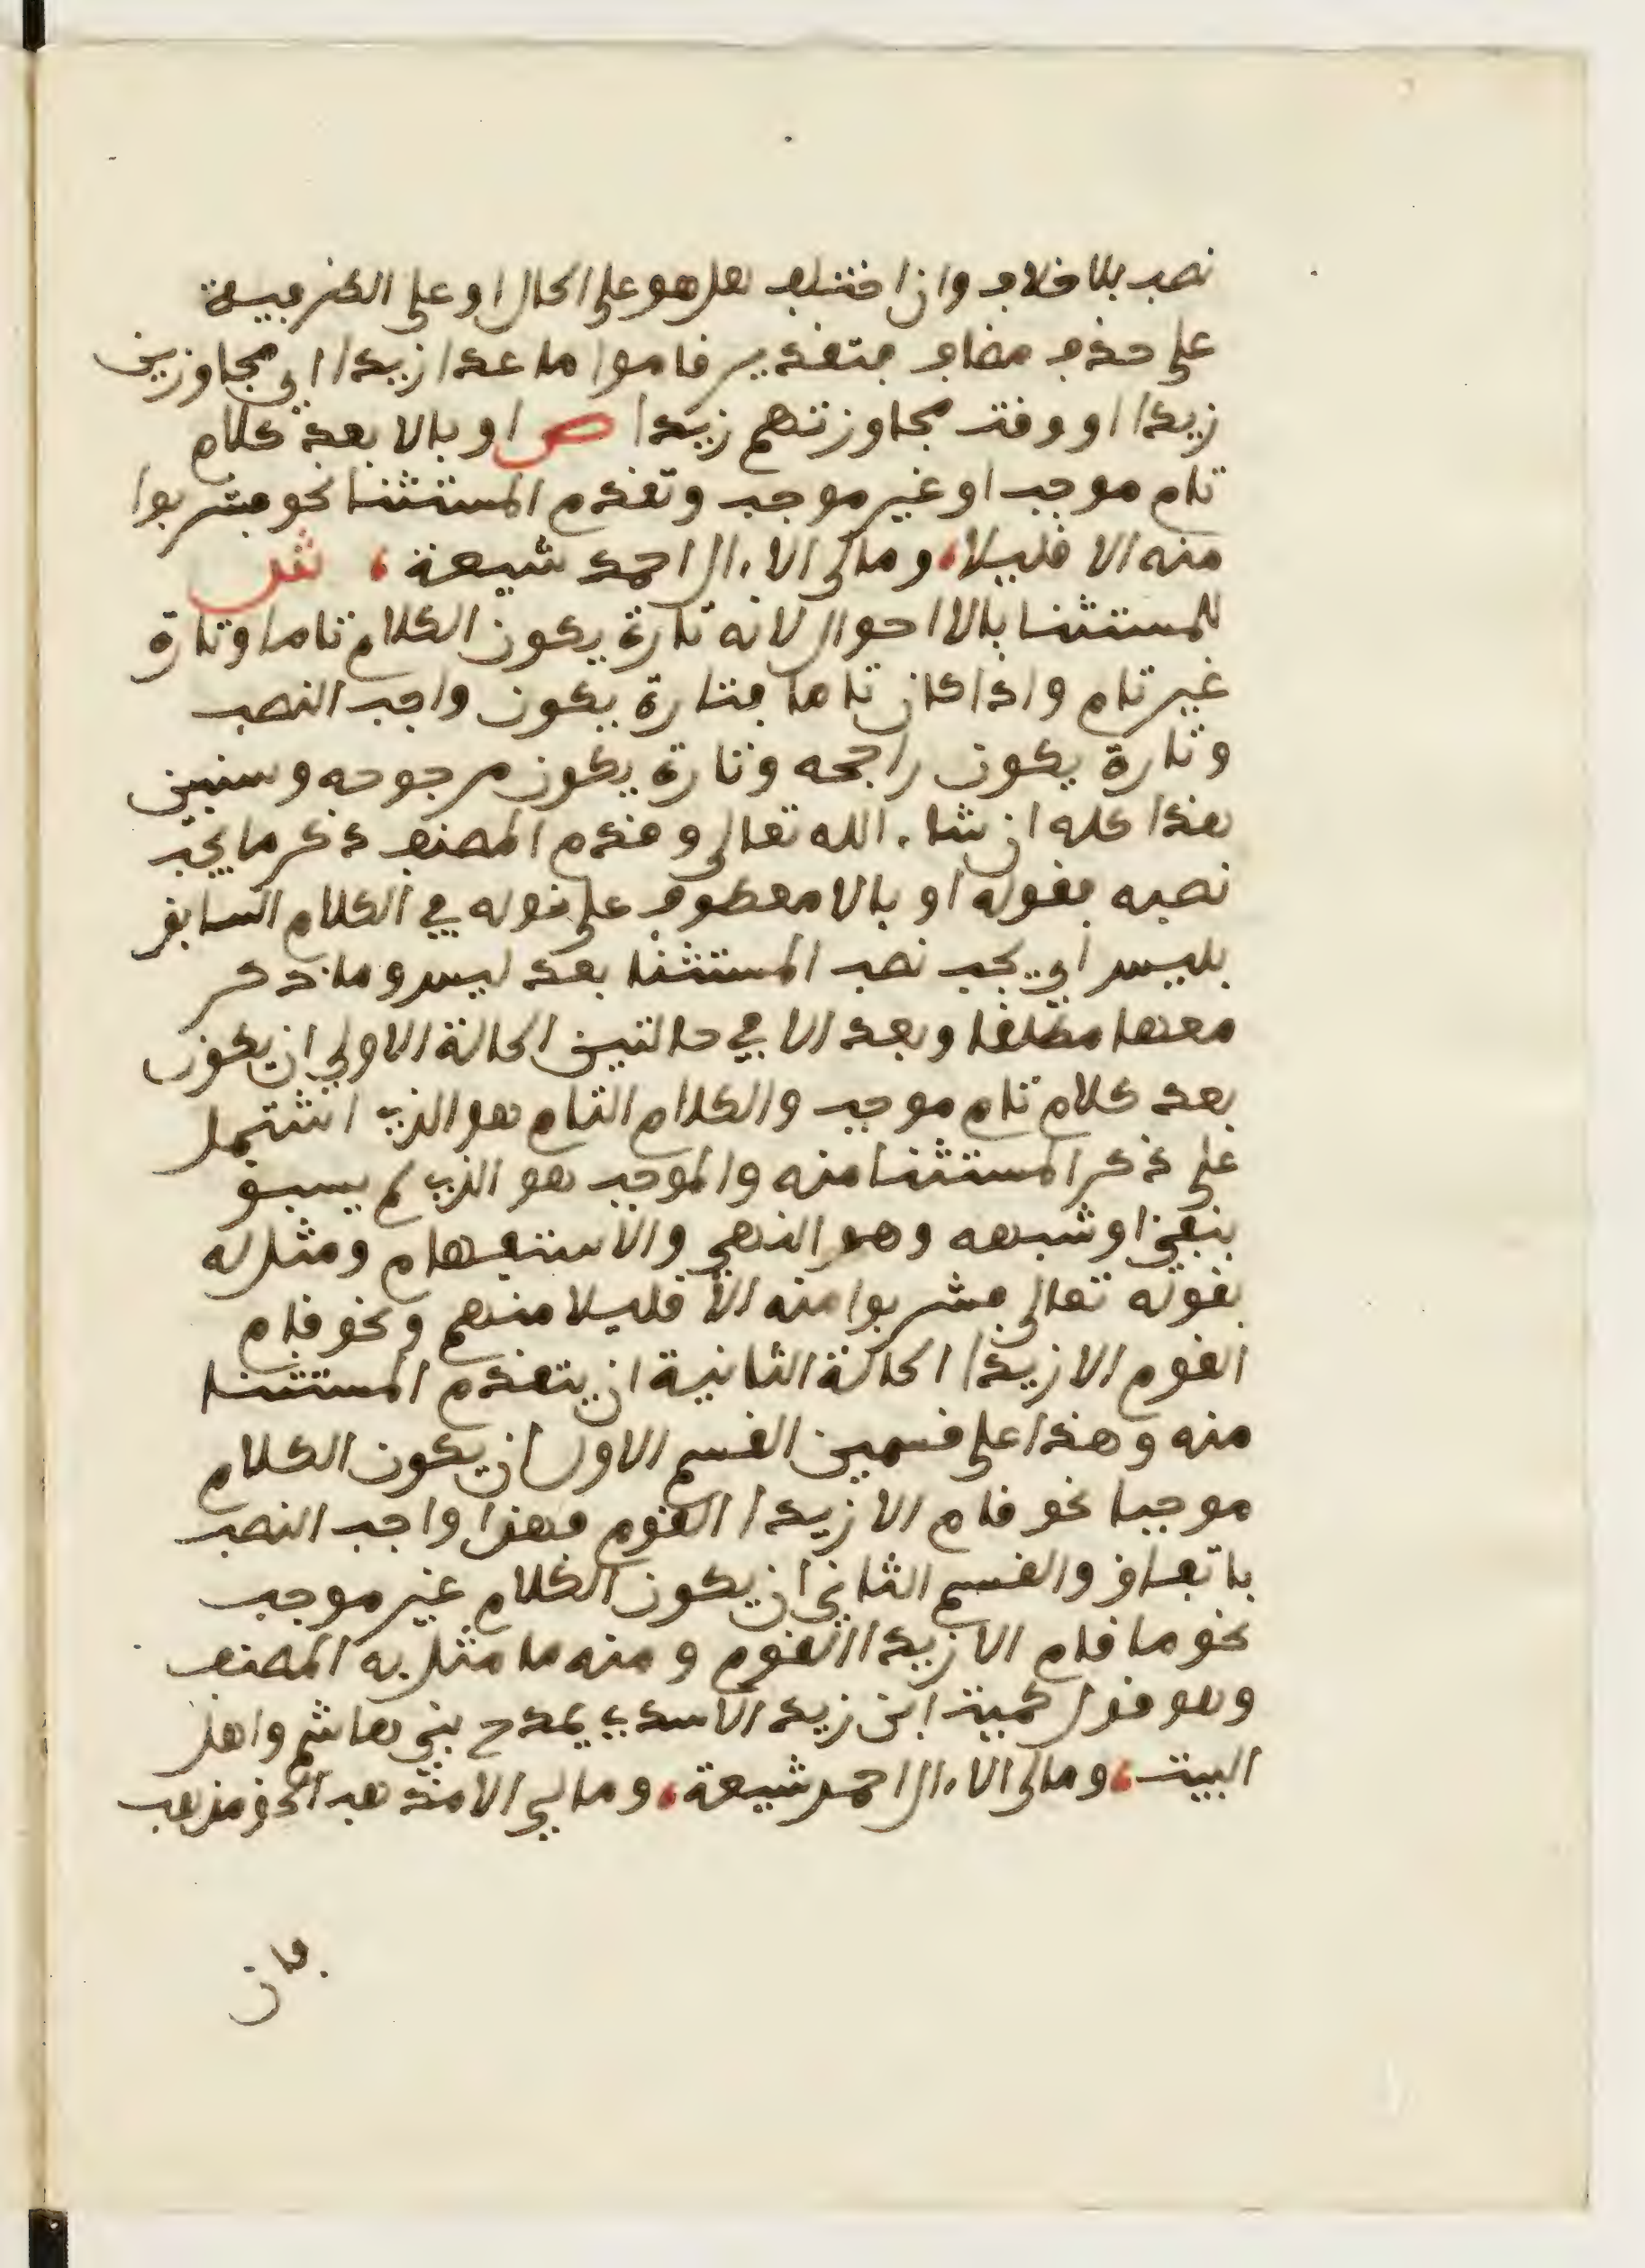 نصب بلا خلاف وان اختلف هل هو على الحال او على الظرفية
على حذف مضاف فتقدير قاموا ما عدا زيدا اي مجاوزين
زيدا او وقت مجاوزتهم زيدا ص او بالا بعد كلام
تام موجب او غير موجب وتقدم المستثنا نحو فشربوا
منه الا قليلا، ومالى الا ءال احمد شيعة، ش
للمستثنا بالا احوال لانه تارة يكون الكلام تاما وتارة
غير تام واذا كان تاما فتارة يكون واجب النصب
وتارة يكون راجحه وتارة يكون مرجوحه وسنبين
هذا كله ان شاء الله تعالى وقدم المصنف ذكر ما يجب
نصبه بقوله او بالا معطوف على قوله في الكلام السابق
بليس اي يجب نصب المستثنا بعد ليس وما ذكر
معها مطلقا وبعد الا في حالتين الحالة الاولي ان يكون
بعد كلام تام موجب والكلام التام هو الذي اشتمل
على ذكر المستثنا منه والموجب هو الذي لم يسبق
بنفي او شبهه وهو النهي والاستفهام ومثل له
بقوله تعالى فشربوا منه الا قليلا منهم ونحو قام
القوم الا زيدا الحالة الثانية ان يتقدم المستثنا
منه وهذا على قسمين القسم الاول ان يكون الكلام
موجبا نحو قام الا زيدا القوم فهذا واجب النصب
باتفاق والقسم الثاني ان يكون الكلام غير موجب
نحو ما قام الا زيدا القوم ومنه ما مثل به المصنف
وهو قول كميت ابن زيد الاسدي يمدح بني هاشم واهل
البيت، ومالى الا ءال احمد شيعة، ومالي الا مذهب الحق مذهب
فان